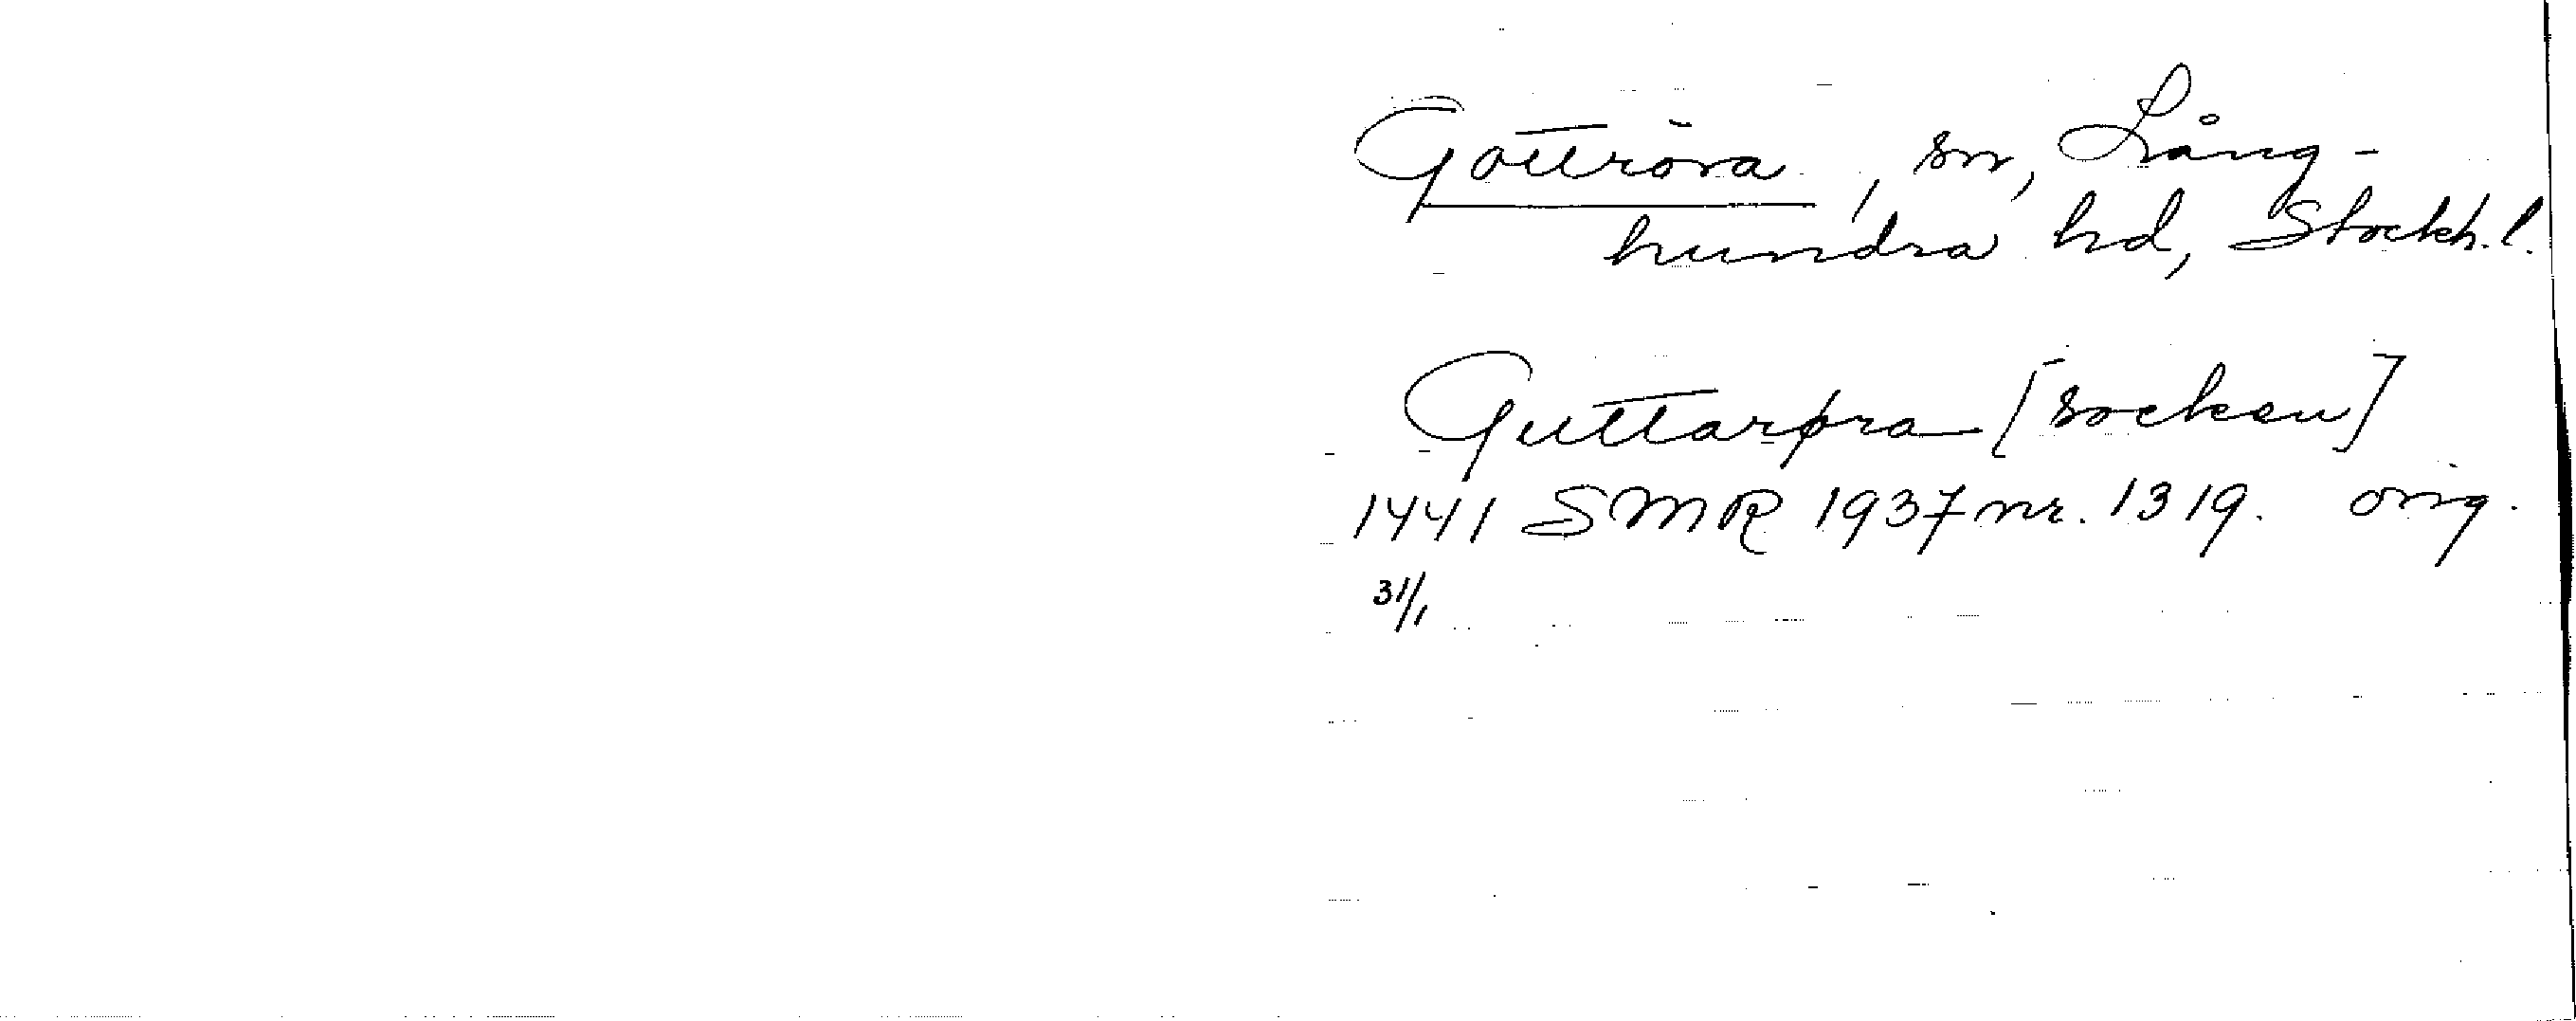 Gottröra, sn, Lång-
hundra hd, Stockh.l.
Guttarøra [socken]
1441 SMR 1937 nr. 1319. orig.
31/1